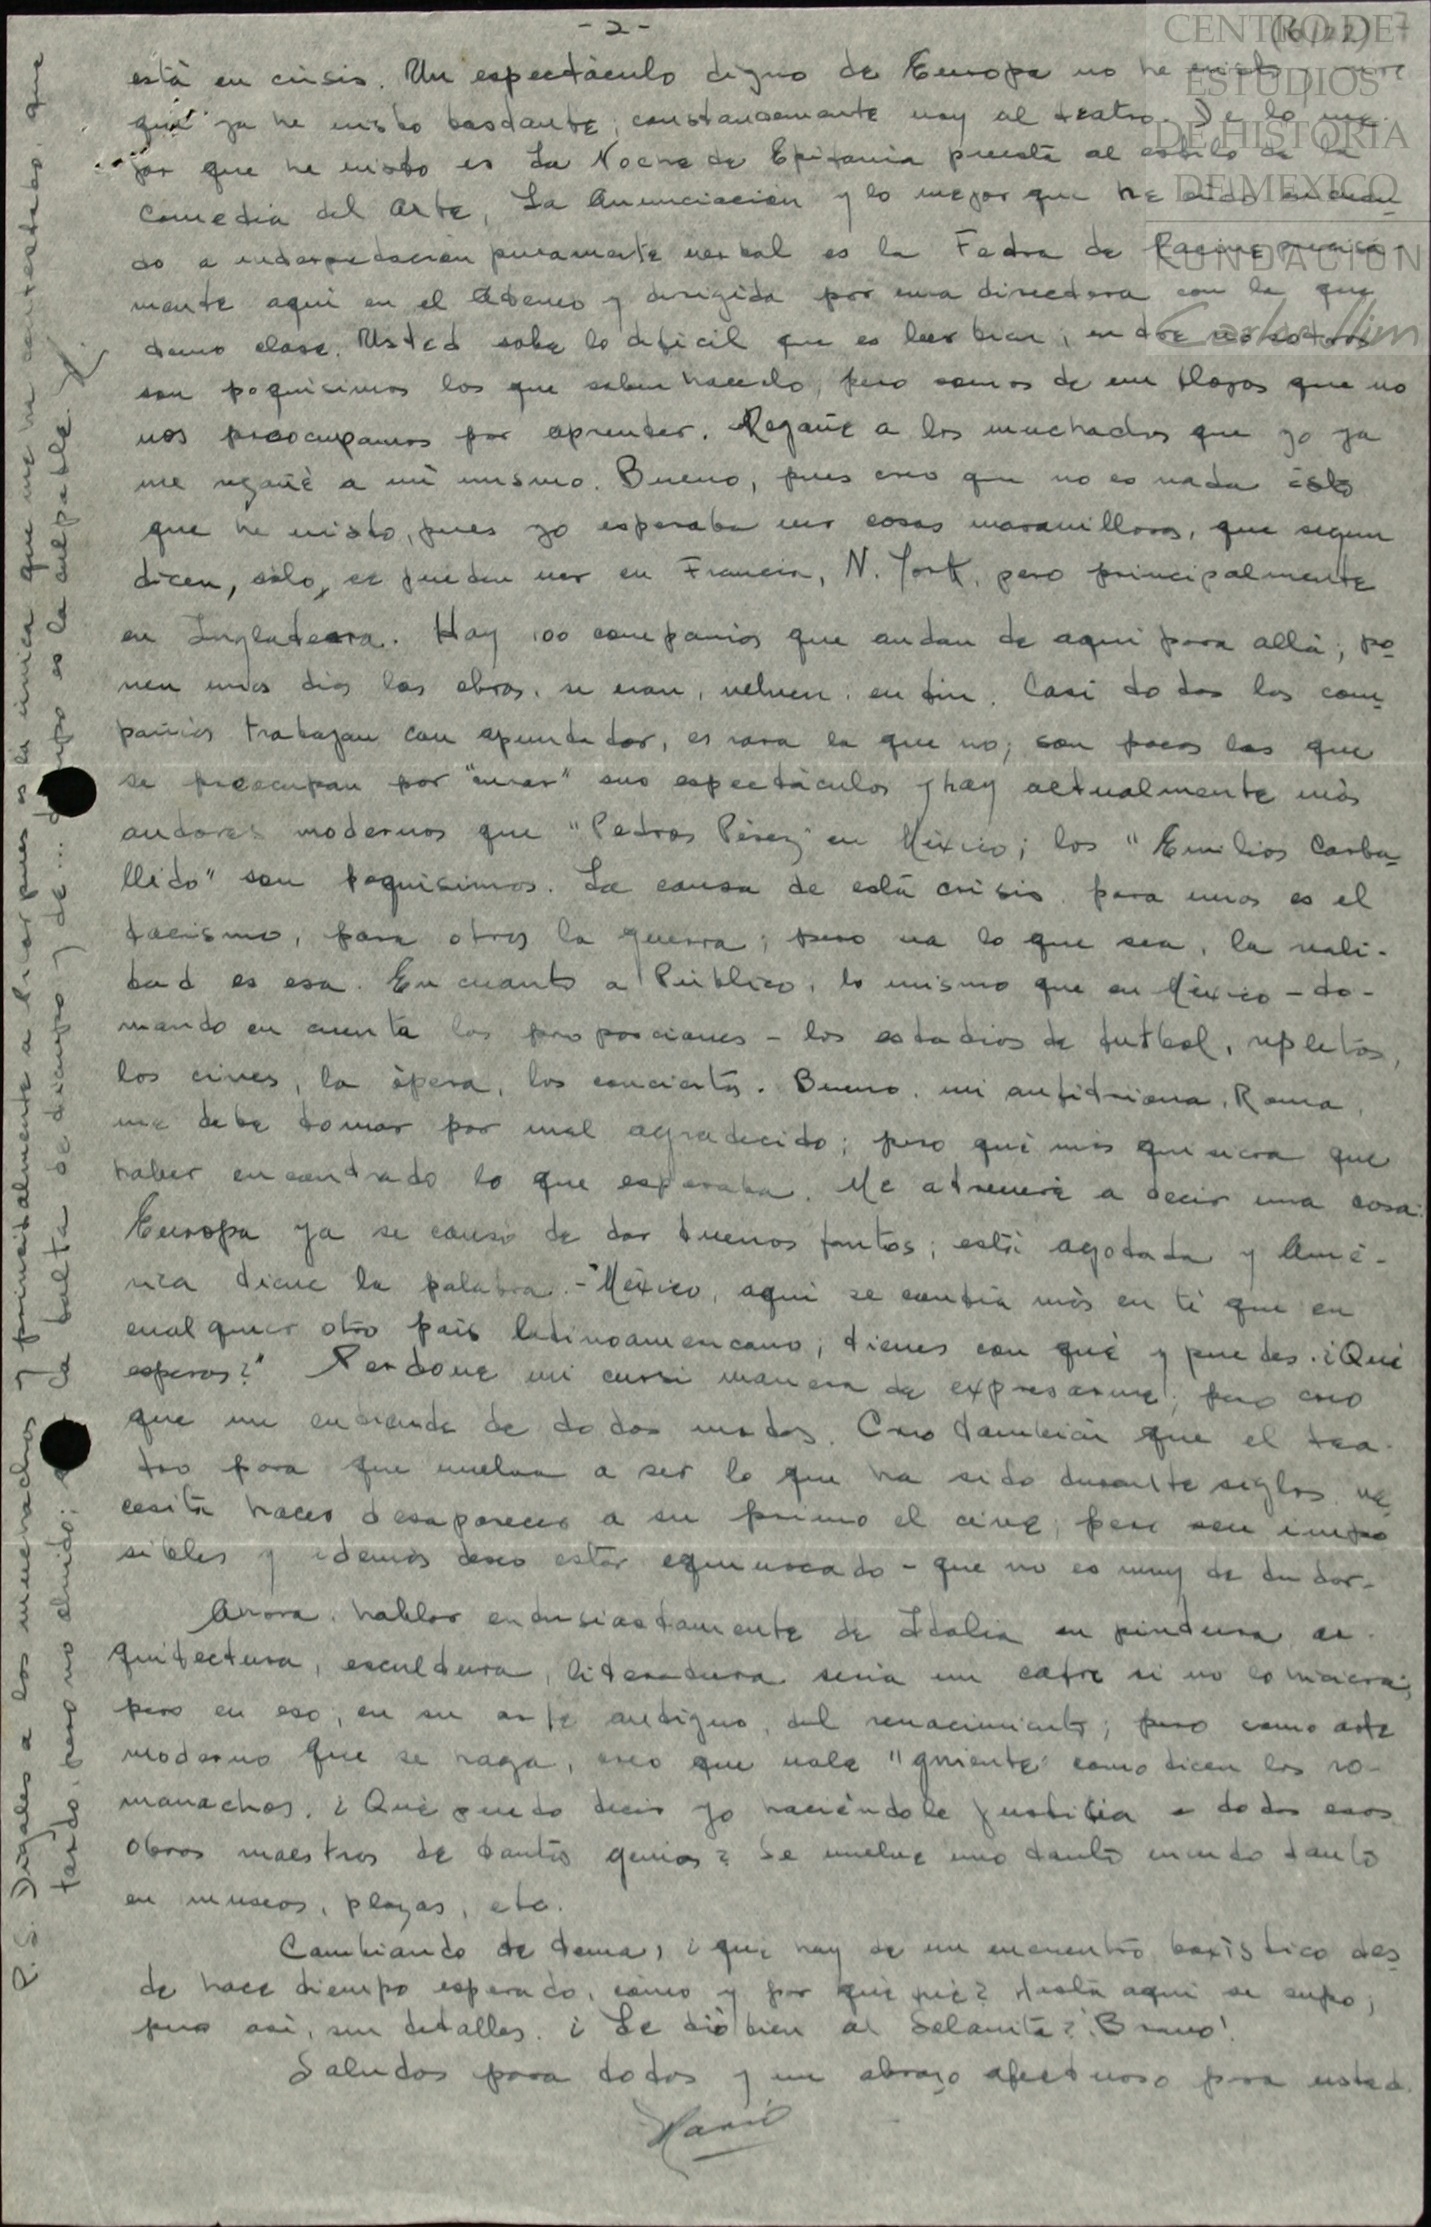 - 2 -
CENTRO DE
ESTUDIOS
DE HISTORIA
DE MEXICO
FUNDACIÓN
Carlos Slim
está en crisis. Un espectáculo digno de Europa no he visto,
que ya he visto bastante; constantemente voy al teatro. De lo me-
jor que he visto es La Noche de Epifanía puesta al estilo de la
Comedia del Arte, La Anunciación y lo mejor que he oído en cuan-
do a interpretación puramente verbal es la Fedra de Racine precisa-
mente aquí en el Ateneo y dirigida por una directora con la que
tomo clase. Usted sabe lo difícil que es leer bien; entre nosotros
son poquísimos los que saben hacerlo, pero somos de flojos que no
nos preocupamos por aprender. Regañe a los muchachos que yo ya
me regañé a mí mismo. Bueno, pues creo que no es nada ésto
que he visto, pues yo esperaba ver cosas maravillosas, que segun
dicen, sólo, se pueden ver en Francia, N. York, pero principalmente
en Inglaterra. Hay 100 compañías que andan de aquí para allá; po-
nen unos dias las obras, se van, vuelven, en fin. Casi todas las com-
pañías trabajan con apuntador, es rara la que no; son pocas las que
se preocupan por "crear" sus espectáculos y hay actualmente más
autores modernos que "Pedros Pérez" en México; los "Emilios Carba-
llido" son poquísimos. La causa de está crisis, para unos es el
facismo, para otros la guerra; pero va lo que sea, la reali-
dad es esa. En cuanto a Público, lo mismo que en México - to-
mando en cuenta las proporciones - los estadios de futbol, repletos,
los cines, la ópera, los conciertos. Bueno, mi anfitriona, Roma,
me debe tomar por mal agradecido; pero qué más quisiera que
haber encontrado lo que esperaba. Me atreveré a decir una cosa:
Europa ya se cansó de dar buenos frutos; está agotada y Amé-
rica tiene la palabra. -"México, aquí se confía más en tí que en
cualquier otro país latinoamericano; tienes con qué y puedes. ¿Qué
esperas?" Perdone mi cursi manera de expresarme; pero creo
que me entiende de todos modos. Creo también que el tea-
tro para que vuelva a ser lo que ha sido durante siglos ne-
cesita hacer desaparecer a su primo el cine; pero son impo
sibles y además deseo estar equivocado - que no es muy de dudar-
Ahora, hablar entusiastamente de Italia en pintura, ar-
quitectura, escultura, literatura sería un cafre si no lo hiciera;
pero en eso, en su arte antiguo, del renacimiento; pero como arte
moderno que se haga, creo que vale "gniente" como dicen los ro-
manachos. ¿Qué puedo decir yo haciéndole justicia a todas esas
obras maestras de tantos genios? Se vuelve uno tonto viendo tanto
en museos, plazas, etc.
Cambiando de tema, ¿qué hay de un encuentro boxístico des-
de hace tiempo esperado, cómo y por qué fué? Hasta aquí se supo;
pero así, sin detalles. ¿Le dió bien al Selanita? ¡Bravo!
Saludos para todos y un abrazo afectuoso para usted.
P.S. Dígales a los muchachos y principalmente a pues es la única que me ha contestado, que
tardo, pero no olvido; la falta de tiempo y de ... es la culpable.